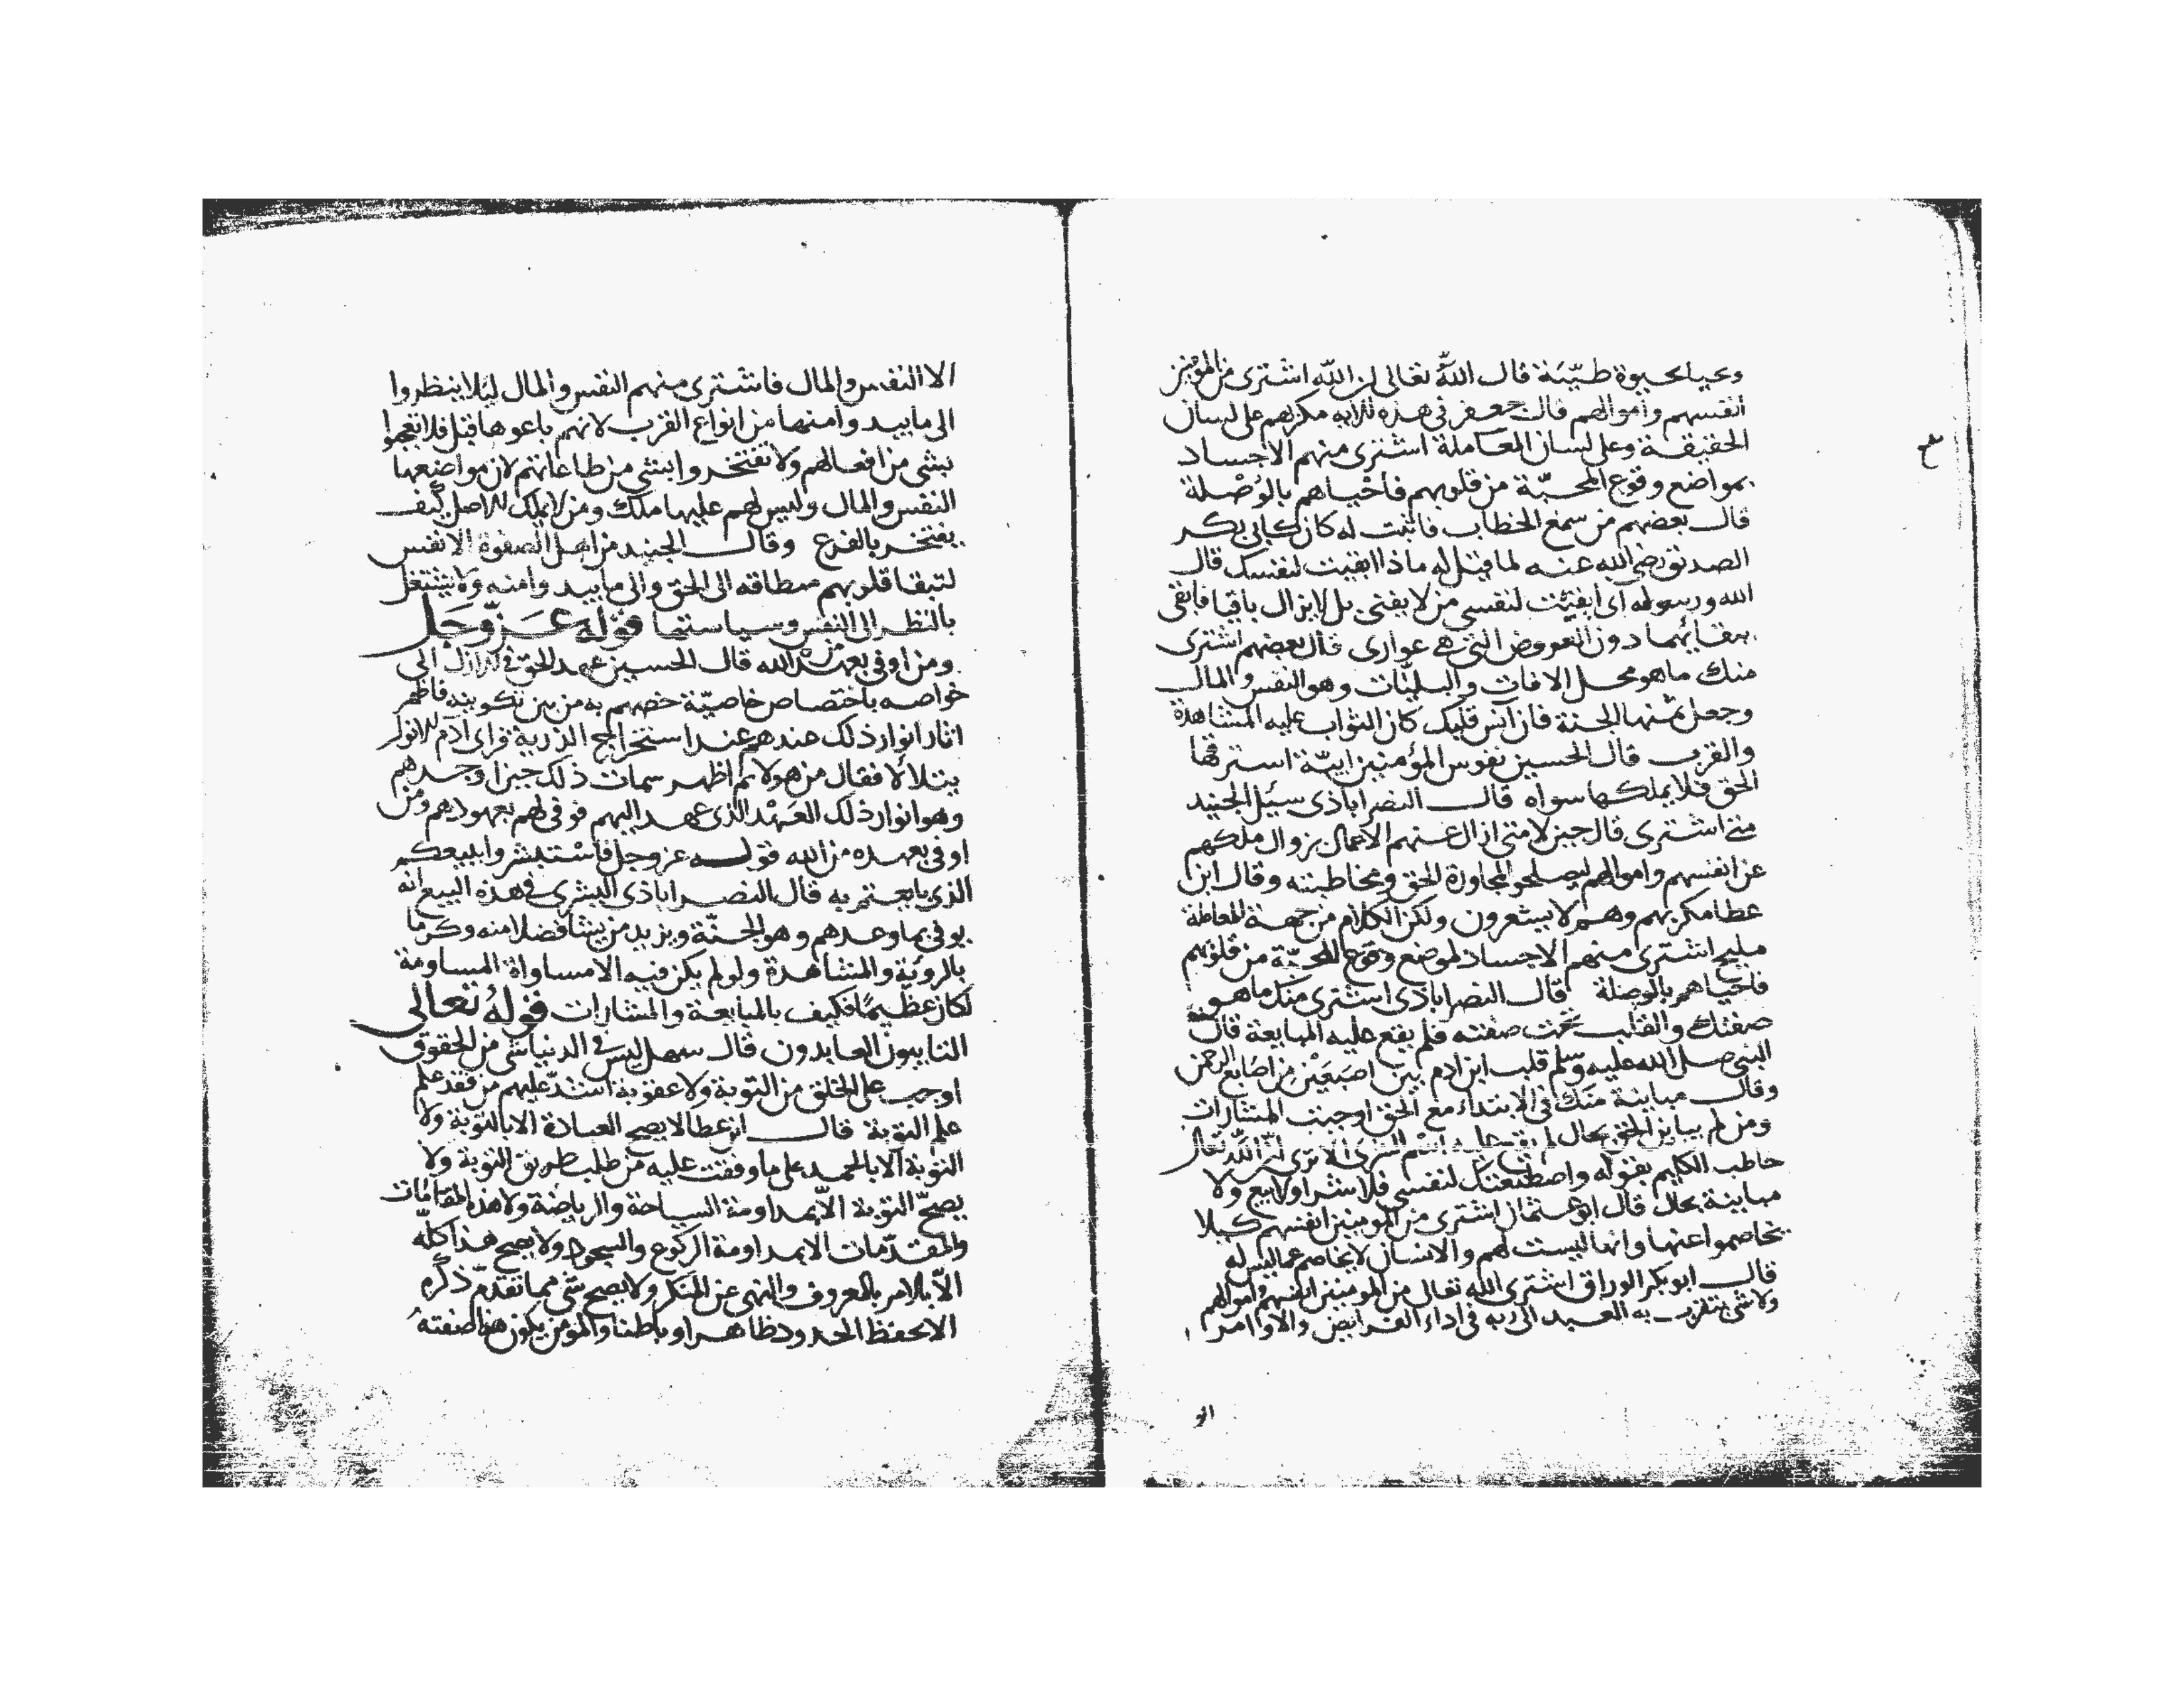 وعبا بحيوة طيّبة قال اللّه تعالى ان اللّه اشترى من المؤمنين
انفسهم واموالهم قال جعفر فى هذه الايه مكر بهم على لسان
الحقيقة وعلى لسان المعاملة اشترى منهم الاجساد
بمواضع وقوع المحبّة من قلوبهم فأحياهم بالوُصْلة
قال بعضهم من سمع الخطاب فانتبت له كان كابى بكر
الصديق رضى الله عنه لما قيل له ماذا ابقيت لنفسك قال
الله ورسوله اى ابقيت لنفسى من لا يفنى بل لا يزال باقيا فابقى
ببقائهما دون العروض التى هى عوارى قال بعضهم اشترى
منك ما هو محل الافات والبليّات وهو النفس والمال
وجعل ثمنها الجنة فان انس قلبك كان الثواب عليه المشاهدة
والقرب قال الحسين نفوس المؤمنين ابيّة استرقها
الحق فلا يملكها سواه قال النصراباذى سيل الجنيد
متى اشترى قال حين لا متى ازال عنهم الاعمال بزوال ملكهم
عن انفسهم واموالهم ليصلحوا لمجاورة الحق ومخاطبته وقال ابن
عطا مكر بهم وهم لا يشعرون ولكن الكلام من جهة المعاملة
مليح اشترى منهم الاجساد لموضع وقوع المحبّة من قلوبهم
فاحياهم بالوصلة قال النصراباذى اشترى منك ما هو
صفتك والقلب تحت صفته فلم يقع عليه المبايعة قال
النبى صلى الله عليه وسلم قلب ابن ادم بين اصبَعَيْن من اصابع الرحمن
وقال مباينة منك فى الابتداء مع الحق اوجبت المشارات
ومن لم يباين الحق بحال لم يقع عليه اسم الشرى الا ترى انّ اللّه تعالى
خاطب الكليم بقوله واصطنعتك لنفسى فلا شرا ولا بيع ولا
مباينة بحال قال ابو عثمان اشترى من المومنين انفسهم كيلا
يخاصموا عنها وانها ليست لهم والانسان لا يخاصم عما ليس له
قال ابو بكر الوراق اشترى الله تعالى من المومنين انفسهم واموالهم
ولا شى يتقرب به العبد الى ربه فى اداء الفرايض والاوامر
الا
الا النفس والمال فاشترى منهم النفس والمال ليلا ينظروا
الى ما يبدو منها من انواع القرب لانهم باعوها قبل فلا يعجبوا
بشى من افعالهم ولا تفتخروا بشى من طاعاتهم لان مواضعها
النفس والمال وليس لهم عليها ملك ومن لا يملك الاصل كيف
يفتخر بالفرع وقال الجنيد من اهل الصفوة الانفس
لتبقا قلوبهم مطاقه الى الحق والى ما يبدو منه ولا يشتغل
بالنظر الى النفس وسياستها قوله عَزّ وَجَل
ومن اوفى بعهده من الله قال الحسين عهد الحق فى الازل الى
خواصه باختصاص خاصيّة خصهم به من بين تكوينه فاظهر
اثار انوار ذلك عندهم عند استخراج الذرية فراى آدم الانوار
يتلألأ فقال من هولا ثم اظهر سمات ذلك حين اوجدهم
وهو انوار ذلك العَهْد الذى عهد اليهم فوفى لهم بعهودهم ومن
اوفى بعهده من الله قوله عز وجل فاسْتبشروا ببيعكم
الذى بايعتم به قال النصراباذى البشرى فى هذه البيع انه
يوفى بما وعدهم وهو الجنّة ويزيد من يشا فضلا منه وكرما
بالروئة والمشاهدة ولو لم يكن فيه الا مساواة المساومة
لكان عظيمًا فكيف بالمبايعة والمشارات قولهُ تعالى
التايبون العابدون قال سهل ليس فى الدنيا شى من الحقوق
اوجب على الخلق من التوبة ولا عقوبة اشدّ عليهم من فقد علم
علم التوبة قال ابن عطا لا يصح العبادة الا بالتوبة ولا
التوبة الا بالحمد على ما وفقت عليه من طلب طريق التوبة ولا
يصحّ التوبة الّا بمداومة السياحة والرياضة ولا هذه المقامات
والمقدّمات الا بمداومة الركوع والسجود ولا يصح هذا كلّه
الّا بالامر بالمعروف والنهى عن المنكر ولا يصح شى مما تقدّم ذكره
الا بحفظ الحدود ظاهرا وباطنا والمؤمن يكون هذا صفته